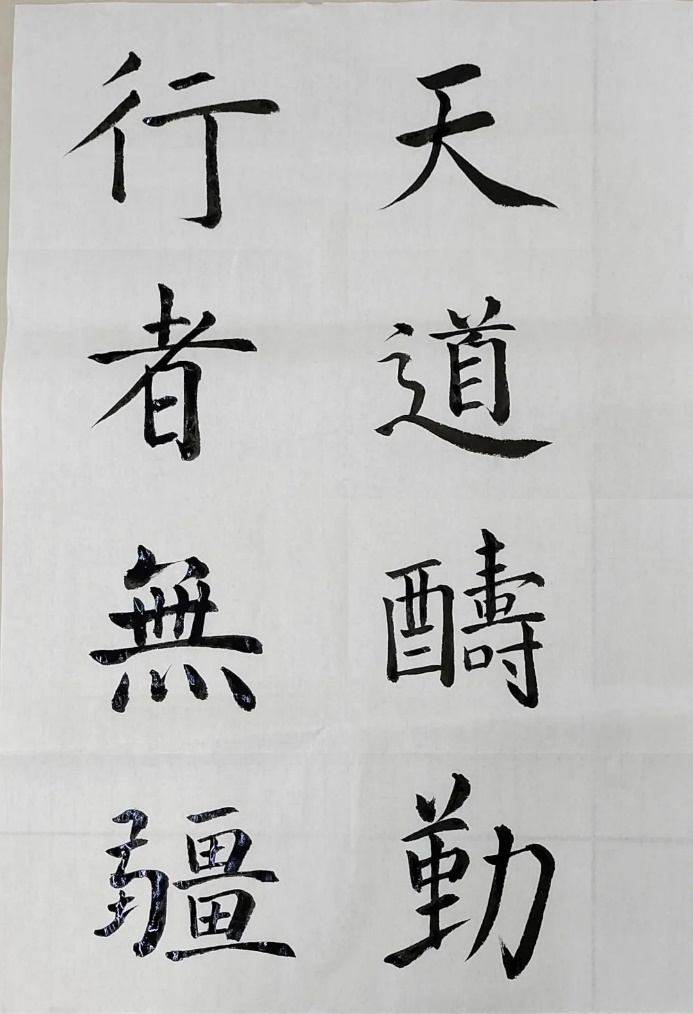 天道醻勤
行者無疆